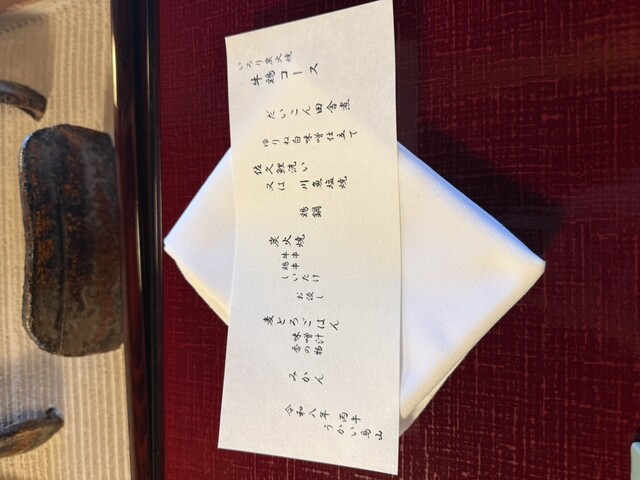 いろり炭火焼
牛鶏コース
だいこん田舎煮
ゆりね白味噌仕立て
佐久鯉洗い
又は 川魚塩焼
鶏鍋
炭火焼
牛串
鶏串
しいたけ
お浸し
麦とろごはん
味噌汁
香の物
みかん
令和八年 丙午
うかい鳥山